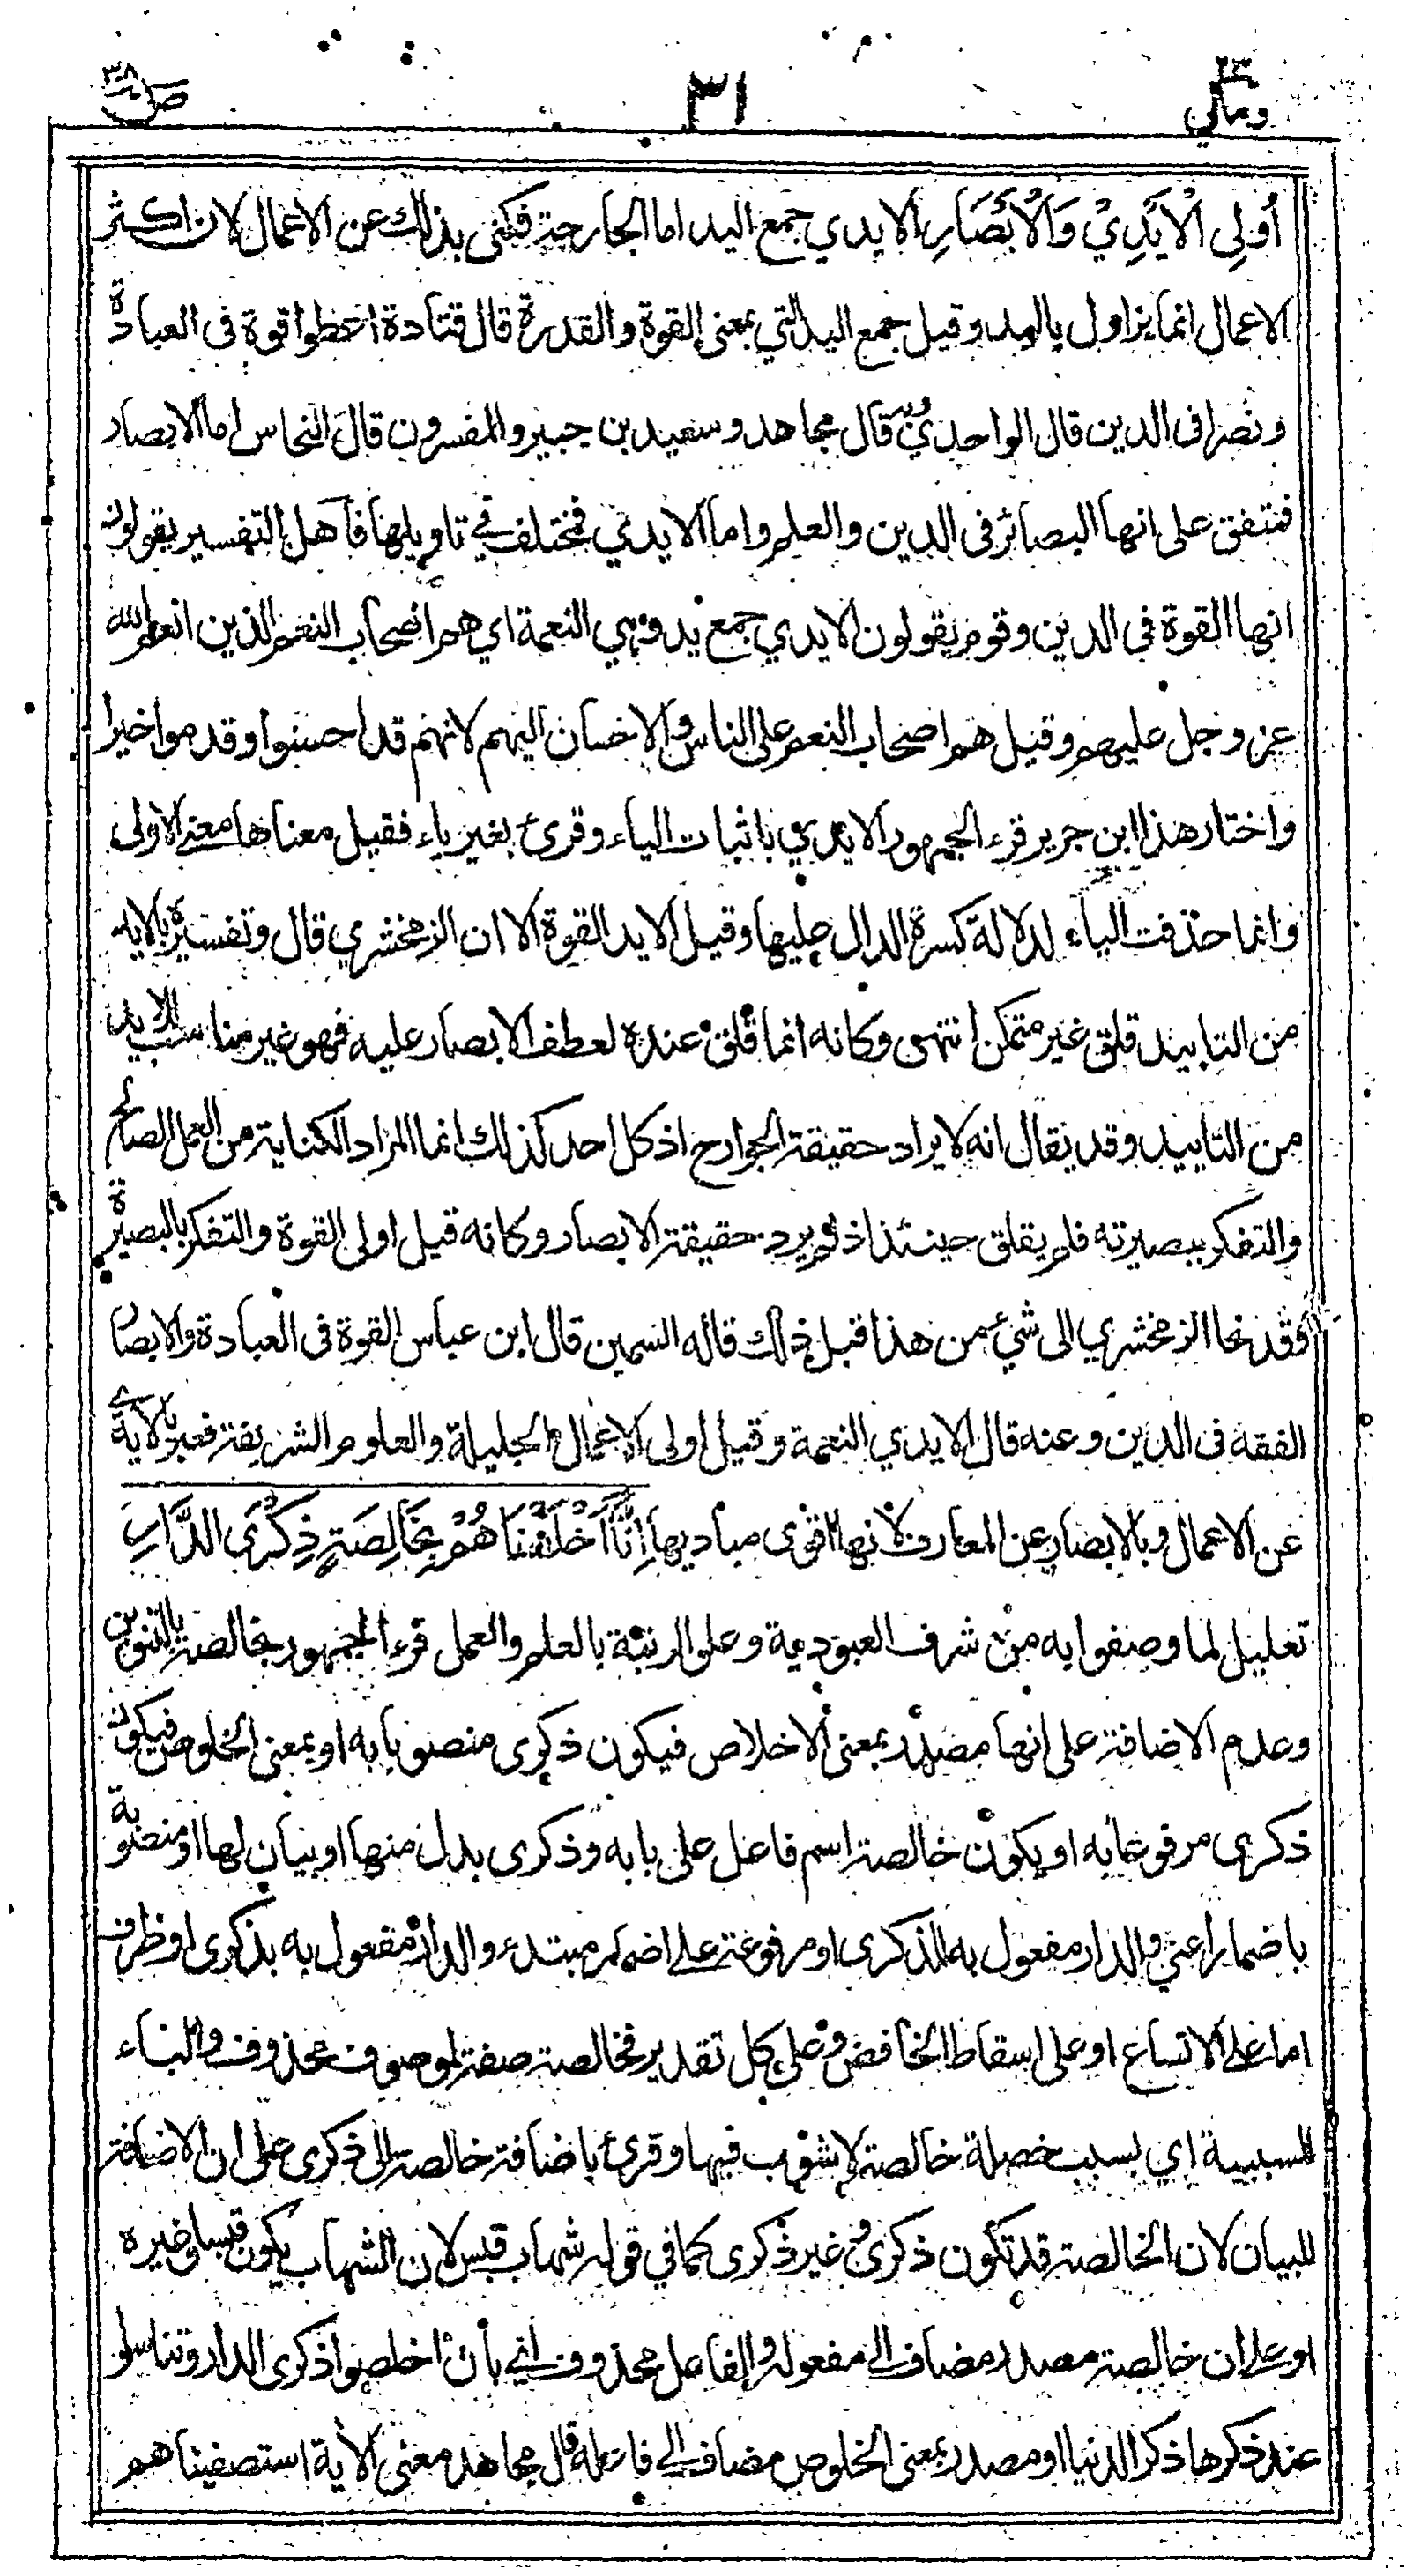 ومالي ٢٣
٣١
ص ٣٨
أُولِي الْأَيْدِيْ وَالْأَبْصَارِ الايدي جمع اليد اما الجارحة فكنى بذلك عن الاعمال لان اكثر
الاعمال انما يزاول باليد وقيل جمع اليد التي بمعنى القوة والقدرة قال قتادة اعطوا قوة فى العبادة
ونصرا فى الدين قال الواحدي وبه قال مجاهد وسعيد بن جبير والمفسرون قال النحاس اما الابصار
فمتفق على انها البصائر فى الدين والعلم واما الايدي فمختلف في تاويلها فاهل التفسير يقولون
انها القوة فى الدين وقوم يقولون الايدي جمع يد وهي النعمة اي هم اصحاب النعم الذين انعم الله
عز وجل عليهم وقيل هم اصحاب النعم على الناس والاحسان اليهم لانهم قد احسنوا وقدموا خيرا
واختار هذا ابن جرير قرء الجمهور الايدي باثبات الياء وقرئ بغير ياء فقيل معناها معنى الاولى
وانما حذفت الياء لدلالة كسرة الدال عليها وقيل الايد القوة الا ان الزمخشري قال وتفسيره بالايد
من التاييد قلق غير متمكن انتهى وكانه انما قلق عنده لعطف الابصار عليه فهو غير مناسب للايد
من التاييد وقد يقال انه لا يراد حقيقة الجوارح اذ كل احد كذلك انما المراد الكناية من العمل الصالح
والتفكر ببصيرته فلم يقلق حينئذ اذ لم يرد حقيقة الابصار وكانه قيل اولى القوة والتفكر بالبصيرة
وقد نحا الزمخشري الى شيء من هذا قبل ذلك قاله السمين قال ابن عباس القوة فى العبادة والابصار
الفقه فى الدين وعنه قال الايدي النعمة وقيل اولى الاعمال الجليلة والعلوم الشريفة فعبر بالايدي
عن الاعمال وبالابصار عن المعارف لانها اقوى مباديها إِنَّا أَخْلَصْنَاهُمْ بِخَالِصَةٍ ذِكْرَى الدَّارِ
تعليل لما وصفوا به من شرف العبودية وعلو الرتبة بالعلم والعمل قرء الجمهور بخالصة بالتنوين
وعدم الاضافة على انها مصدر بمعنى الاخلاص فيكون ذكرى منصوبا به او بمعنى الخلوص فيكون
ذكرى مرفوعا به او يكون خالصة اسم فاعل على بابه وذكرى بدل منها او بيان لها او منصوبة
باضمار اعني والدار مفعول به لذكرى او مرفوعة على اضمار مبتدء والدار مفعول به بذكرى او ظرف
اما على الاتساع او على اسقاط الخافض وعلى كل تقدير فخالصة صفة لموصوف محذوف والباء
للسببية اي بسبب خصلة خالصة لا شوب فيها وقرئ باضافة خالصة الى ذكرى على ان الاضافة
للبيان لان الخالصة قد تكون ذكرى وغير ذكرى كما في قوله شهاب قبس لان الشهاب يكون قبسا وغيره
او على ان خالصة مصدر مضاف الى مفعوله والفاعل محذوف اي بأن اخلصوا ذكرى الدار وتناسوا
عند ذكرها ذكر الدنيا او مصدر بمعنى الخلوص مضاف الى فاعله قال مجاهد معنى الآية استصفيناهم